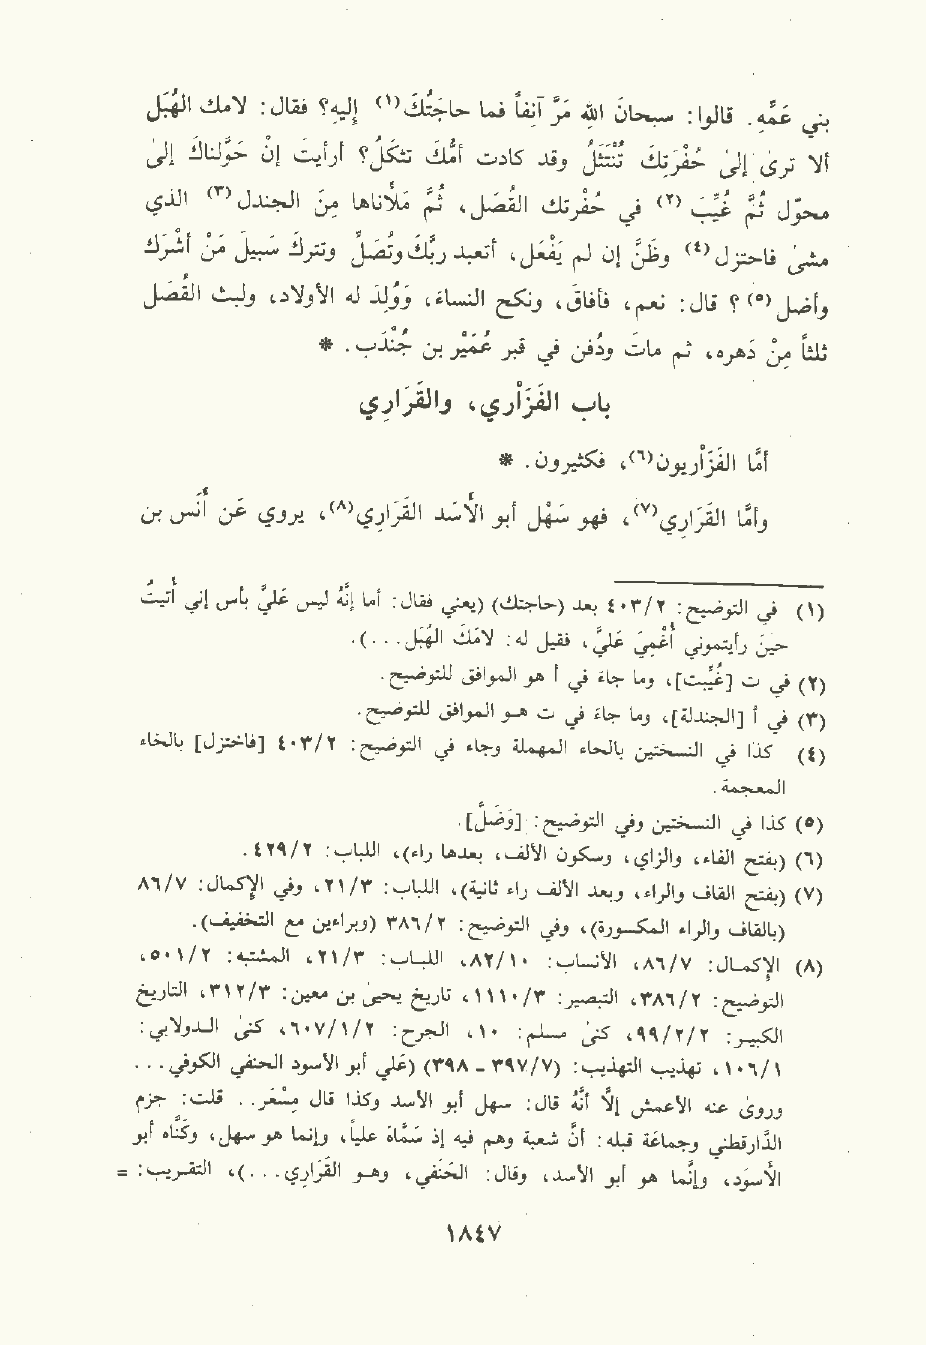 بني عَمِّهِ. قالوا: سبحانَ الله مَرَّ آنِفاً فما حاجَتُكَ(١) إليهِ؟ فقال: لامك الهُبَلْ
ألا ترى إلى حُفْرَتِكَ تُنْتَثَلْ وقد كادت أمُّكَ تُثكَلْ؟ أرأيتَ إن حَوَّلناكَ إلى
محوّل ثُمَّ غُيِّبَ(٢) في حُفْرتك القُصَل، ثُمَّ مَلأناها مِن الجندل(٣) الذي
مشىٰ فاحتزل(٤) وظَنَّ إن لم يَفْعَل، أتعبد ربَّكَ وتُصَلِّ وتتركَ سَبيلَ مَنْ أَشْرَك
وأضل(٥) ؟ قال: نعم، فأفاقَ، ونكح النساءَ، ووُلِدَ له الأولاد، ولبث القُصَل
ثلثاً مِنْ دَهره، ثم ماتَ ودُفن في قبر عُمَيْر بن جُنْدَب. *
باب الفَزَاْري، والقَرَارِي
أمَّا الفَزَاْريون(٦)، فكثيرون. *
وأمَّا القَرَارِي(٧)، فهو سَهْل أبو الأَسَد القَرَارِي(٨)، يروي عَن أَنَس بن
(١) في التوضيح: ٤٠٣/٢ بعد (حاجتك) (يعني فقال: أما إنَّهُ ليس عَليَّ بأس إني أُتيتُ
حينَ رأيتموني أُغْمِيَ عَليَّ، فقيل له: لأمَكَ الهُبَلْ. . .).
(٢) في ت [غُيِّبت]، وما جاءَ في أ هو الموافق للتوضيح.
(٣) في أ [الجندلة]، وما جاءَ في ت هو الموافق للتوضيح.
(٤) كذا في النسختين بالحاء المهملة وجاء في التوضيح: ٤٠٣/٢ [فاختزل] بالخاء
المعجمة.
(٥) كذا في النسختين وفي التوضيح: [وَضَلَّ].
(٦) (بفتح الفاء، والزاي، وسكون الألف، بعدها راء)، اللباب: ٤٢٩/٢.
(٧) (بفتح القاف والراء، وبعد الألف راء ثانية)، اللباب: ٢١/٣، وفي الإكمال: ٨٦/٧
(بالقاف والراء المكسورة)، وفي التوضيح: ٣٨٦/٢ (وبراءين مع التخفيف).
(٨) الإكمال: ٨٦/٧، الأنساب: ٨٢/١٠، اللباب: ٢١/٣، المشتبه: ٥٠١/٢،
التوضيح: ٣٨٦/٢، التبصير: ١١١٠/٣، تاريخ يحيىٰ بن معين: ٣١٢/٣، التاريخ
الكبير: ٩٩/٢/٢، كنىٰ مسلم: ١٠، الجرح: ٦٠٧/١/٢، كنىٰ الدولابي:
١٠٦/١، تهذيب التهذيب: (٣٩٧/٧ - ٣٩٨) (عَلي أبو الأسود الحنفي الكوفي...
وروىٰ عنه الأعمش إلاّ أنَّهُ قال: سهل أبو الأسد وكذا قال مِسْعَر.. قلت: جزم
الدارقطني وجماعَة قبله: أنَّ شعبة وهم فيه إذ سَمَّاهُ عليّاً، وإنما هو سهل، وكنَّاه أبو
الأسوَد، وإنَّما هو أبو الأسد، وقال: الحَنَفي، وهو القَرَارِي. . .)، التقريب: =
١٨٤٧